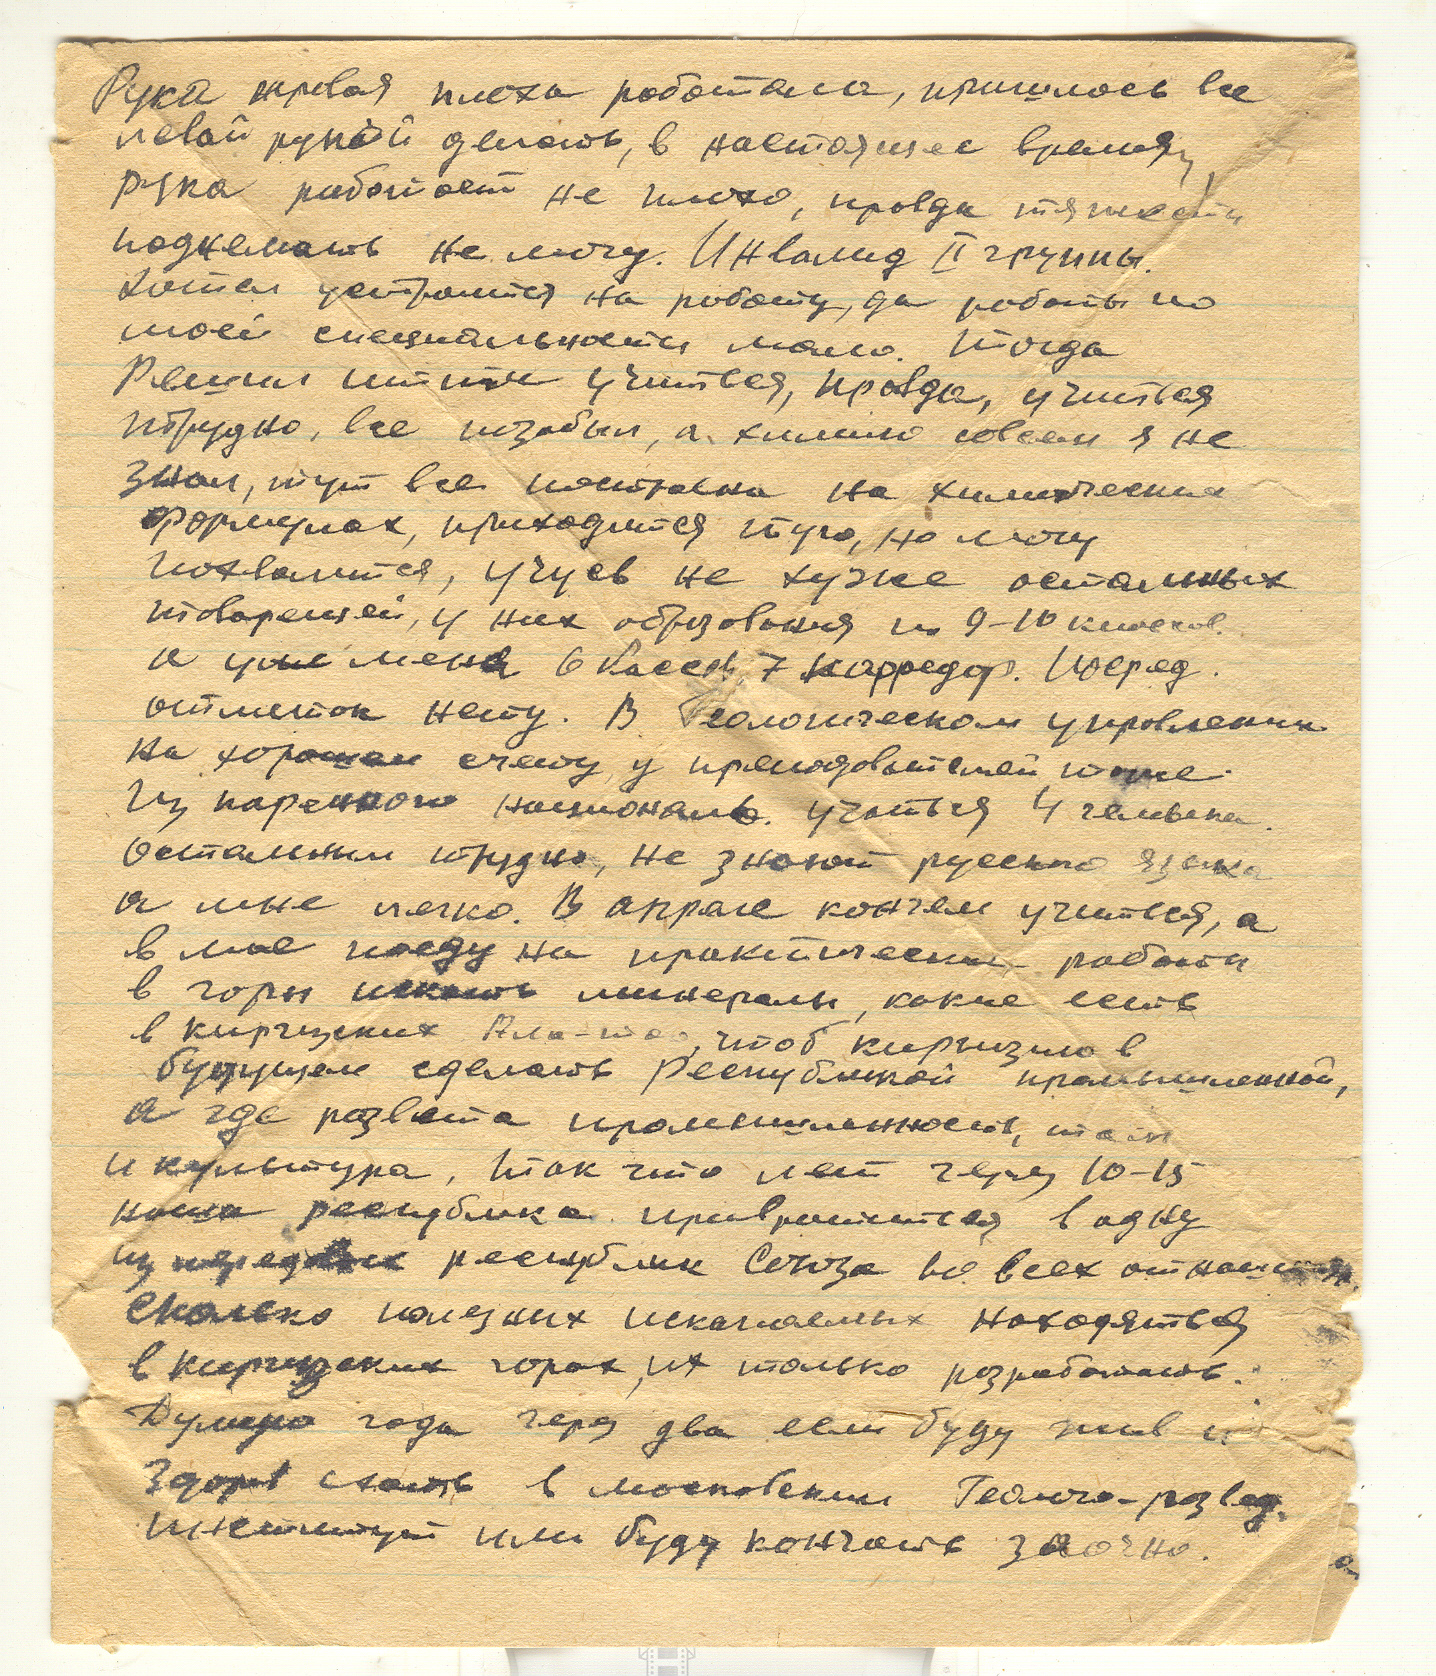 Рука правая плохо работала, пришлось все
левой рукой делать, в настоящее время,
рука работает не плохо, правда тяжести
поднемать не могу. Инвалид II группы.
Хотел устроится на работу, да работы по
моей специальности мало. Тогда
Решил итти учиться, правда, учиться
трудно, все позабыл, а химию совсем я не
знал, тут все построена на химических
формулах, приходится туго, но могу
похвалится, учусь не хуже остальных
товарещей, у них образования по 9-10 классов.
а у меня 6 классов, 7 коридор. Посред.
отметок нету. В Геологическом управлении
на хорошем счету, у преподавателей тоже.
Из коренного националь. учаться 4 человека.
Остальним трудно, не знают русского языка
а мне легко. В апреле кончем учиться, а
в мае поеду на практические работы
в горы искать минералы, какие есть
в киргизских Ала-тоо, чтоб киргизию в
будущем сделать Республикой промышленной,
а где развета промышленность, там
и культура, так что лет через 10-15
наша республика привратится в одну
из передовых республик Союза во всех отношениях.
Сколько полезных ископаемых находяться
в киргизских горах, их только разработать.
Думаю года через два если буду жив и
здоров ехать в московский Геолого-развед.
институт или буду кончать заочно.